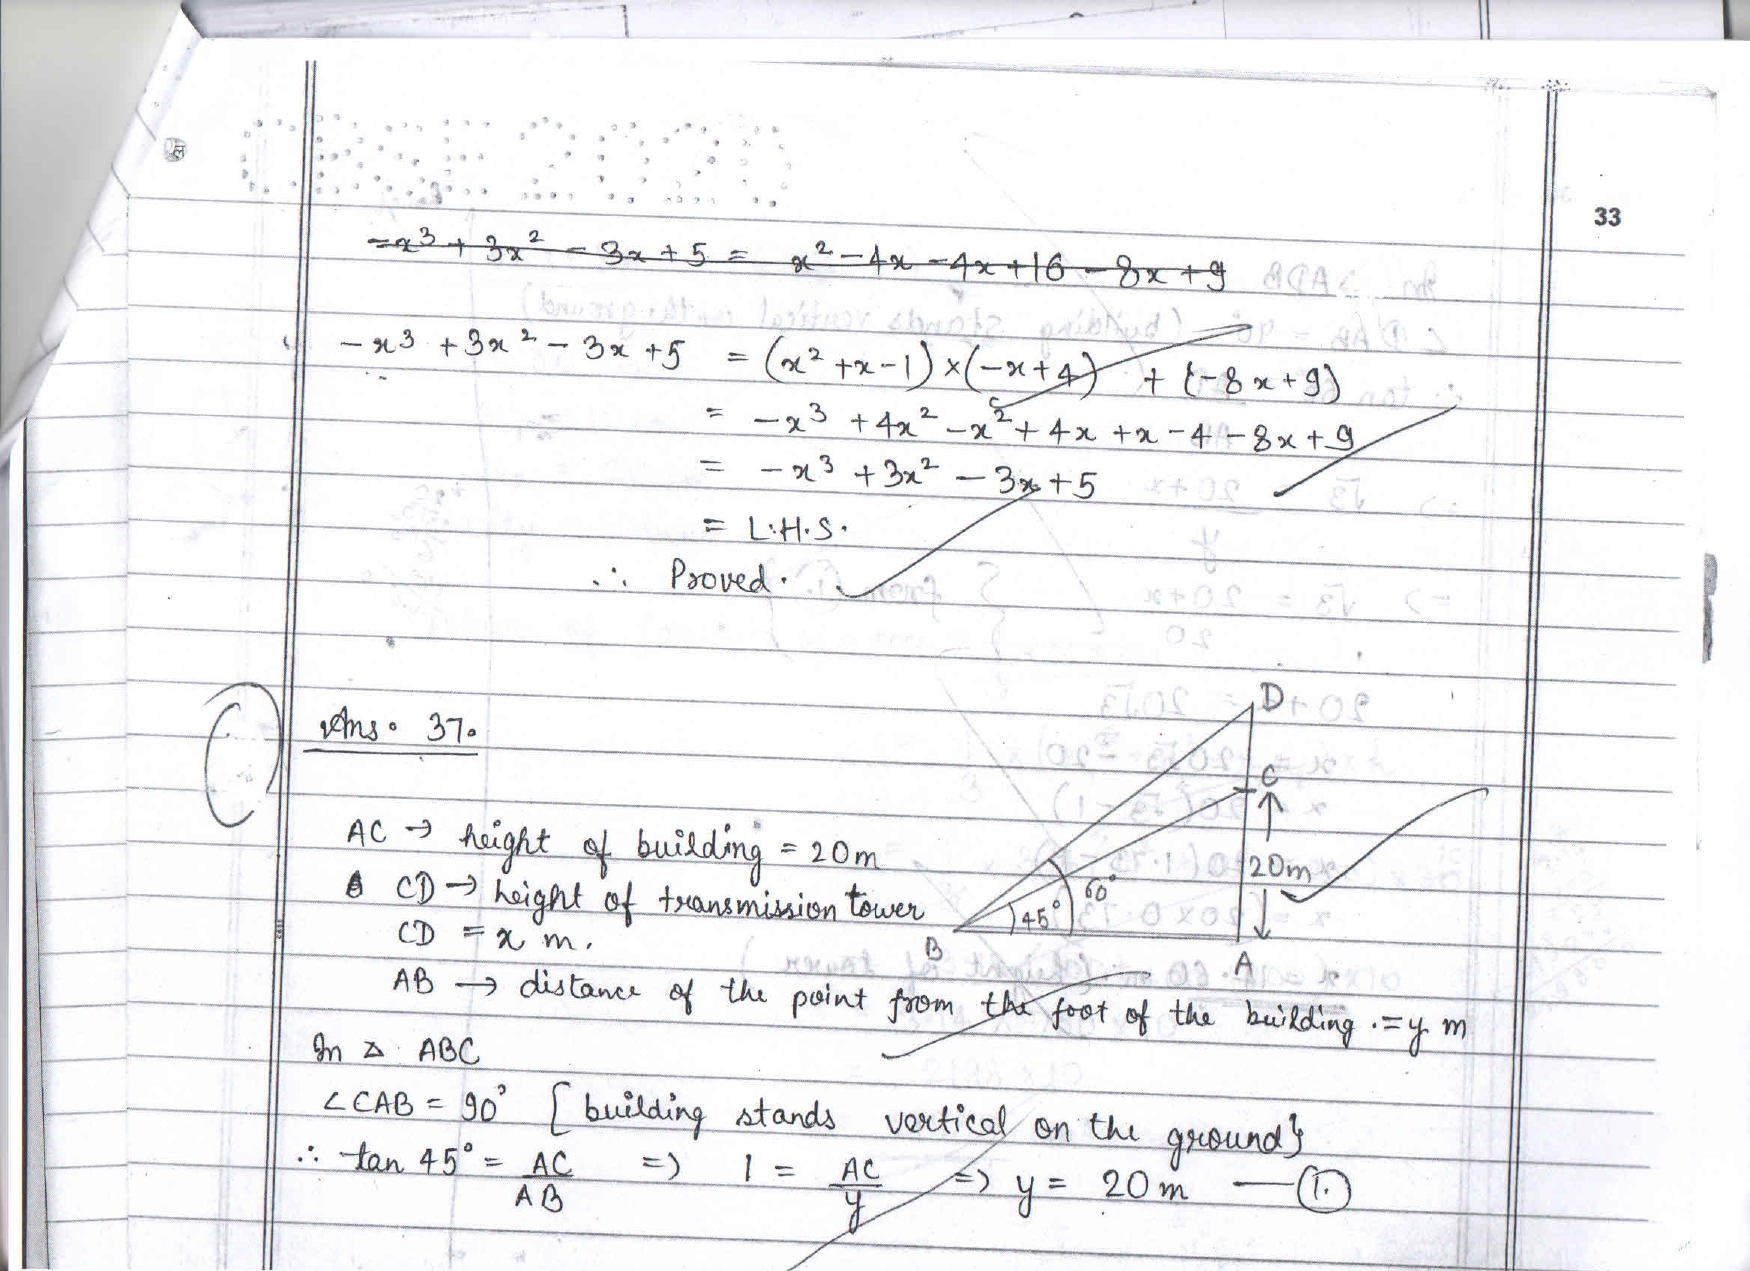 CBSE 2020
33
= x³ + 3x² - 3x + 5 = x² - 4x - 4x + 16 - 8x + 9
- x³ + 3x² - 3x + 5 = (x² + x - 1) × (-x + 4) + (-8x + 9)
= - x³ + 4x² - x² + 4x + x - 4 - 8x + 9
= - x³ + 3x² - 3x + 5
= L.H.S.
∴ Proved.
Ans. 37.
D
C
20m
60°
45°
B
A
AC → height of building = 20m
CD → height of transmission tower
CD = x m.
AB → distance of the point from the foot of the building . = y m
In △ ABC
∠CAB = 90° [building stands vertical on the ground}
∴ tan 45° = AC/AB => 1 = AC/y => y = 20 m — (1.)